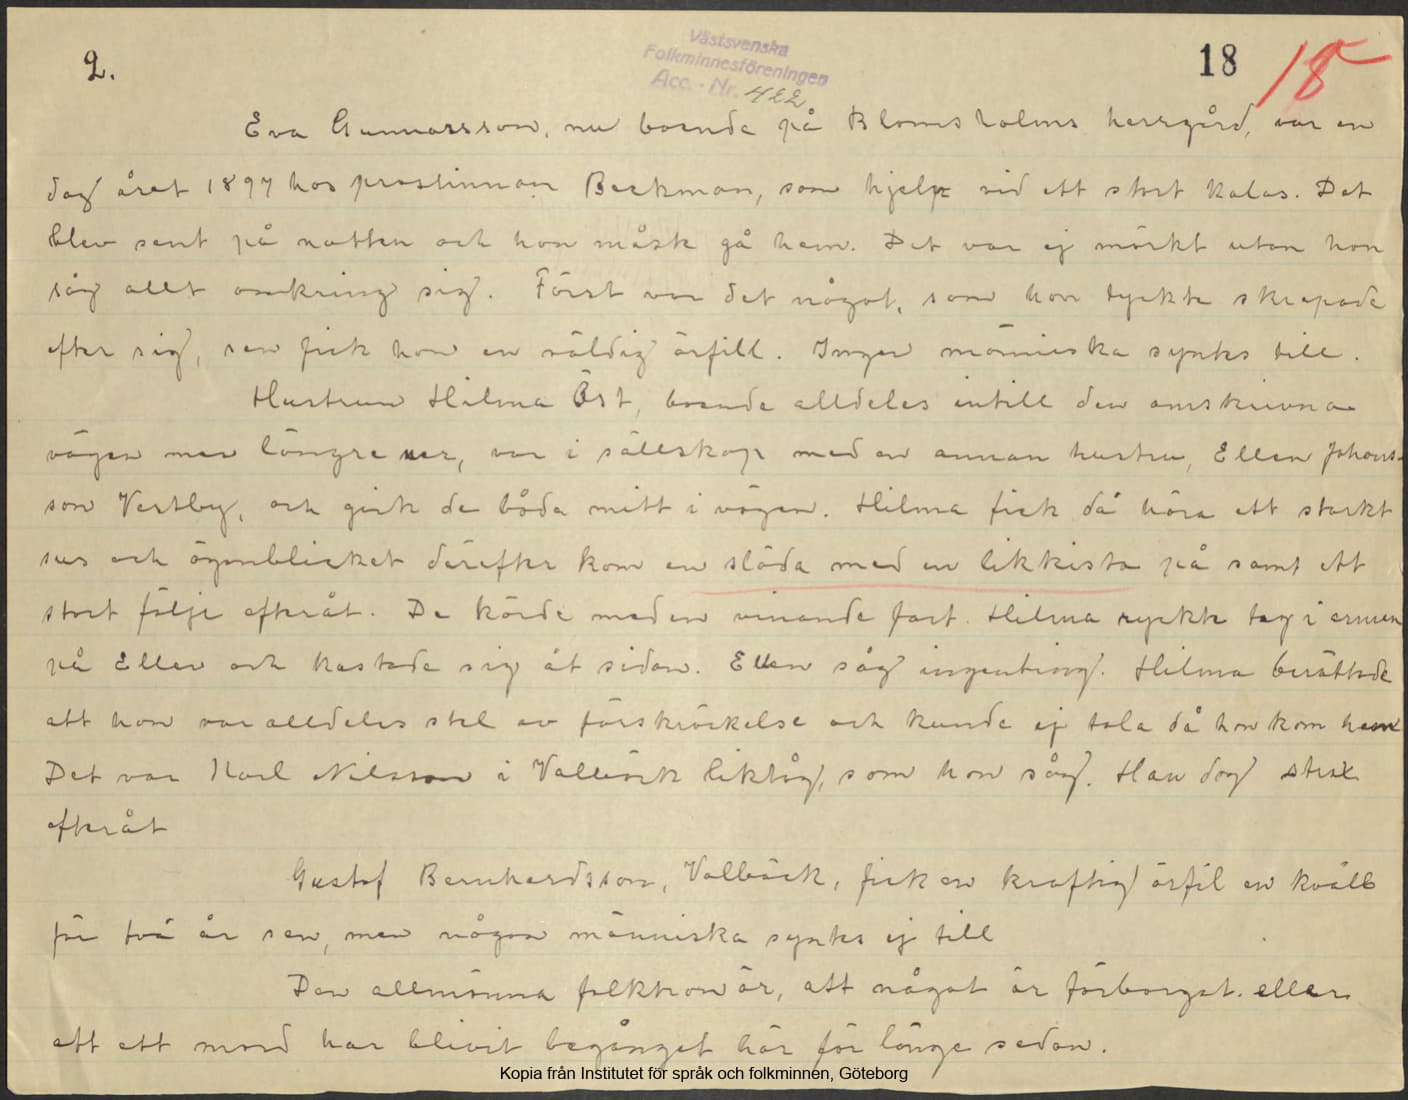 2.
Västsvenska
Folkminnesföreningen
Acc. - Nr. 422
18 18
Eva Gunnarsson, nu boende på Blomsholms herrgård, var en
dag året 1897 hos prostinnan Beckman, som hjelp vid ett stort kalas. Det
blev sent på natten och hon måste gå hem. Det var ej mörkt utan hon
såg allt omkring sig. Först var det något, som hon tyckte skrapade
efter sig, sen fick hon en väldig örfill. Ingen människa syntes till.
Hustrun Hilma Öst, boende alldeles intill den omskrivna
vägen men längre ner, var i sällskap med en annan hustru, Ellen Johans-
son Vestby, och gick de båda mitt i vägen. Hilma fick då höra ett starkt
sus och ögonblicket därefter kom en släda med en likkista på samt ett
stort följe efteråt. De körde med en vinande fart. Hilma ryckte tag i armen
på Ellen och kastade sig åt sidan. Ellen såg ingenting. Hilma berättade
att hon var alldeles stel av förskräckelse och kunde ej tala då hon kom hem
Det var Karl Nilsson i Vallbäck liktåg, som hon såg. Han dog strax
efteråt
Gustaf Bernhardsson, Vallbäck, fick en kraftig örfil en kväll
för två år sen, men någon människa syntes ej till
Den allmänna folktron är, att något är förborgat. eller
att ett mord har blivit begånget här för länge sedan.
Kopia från Institutet för språk och folkminnen, Göteborg